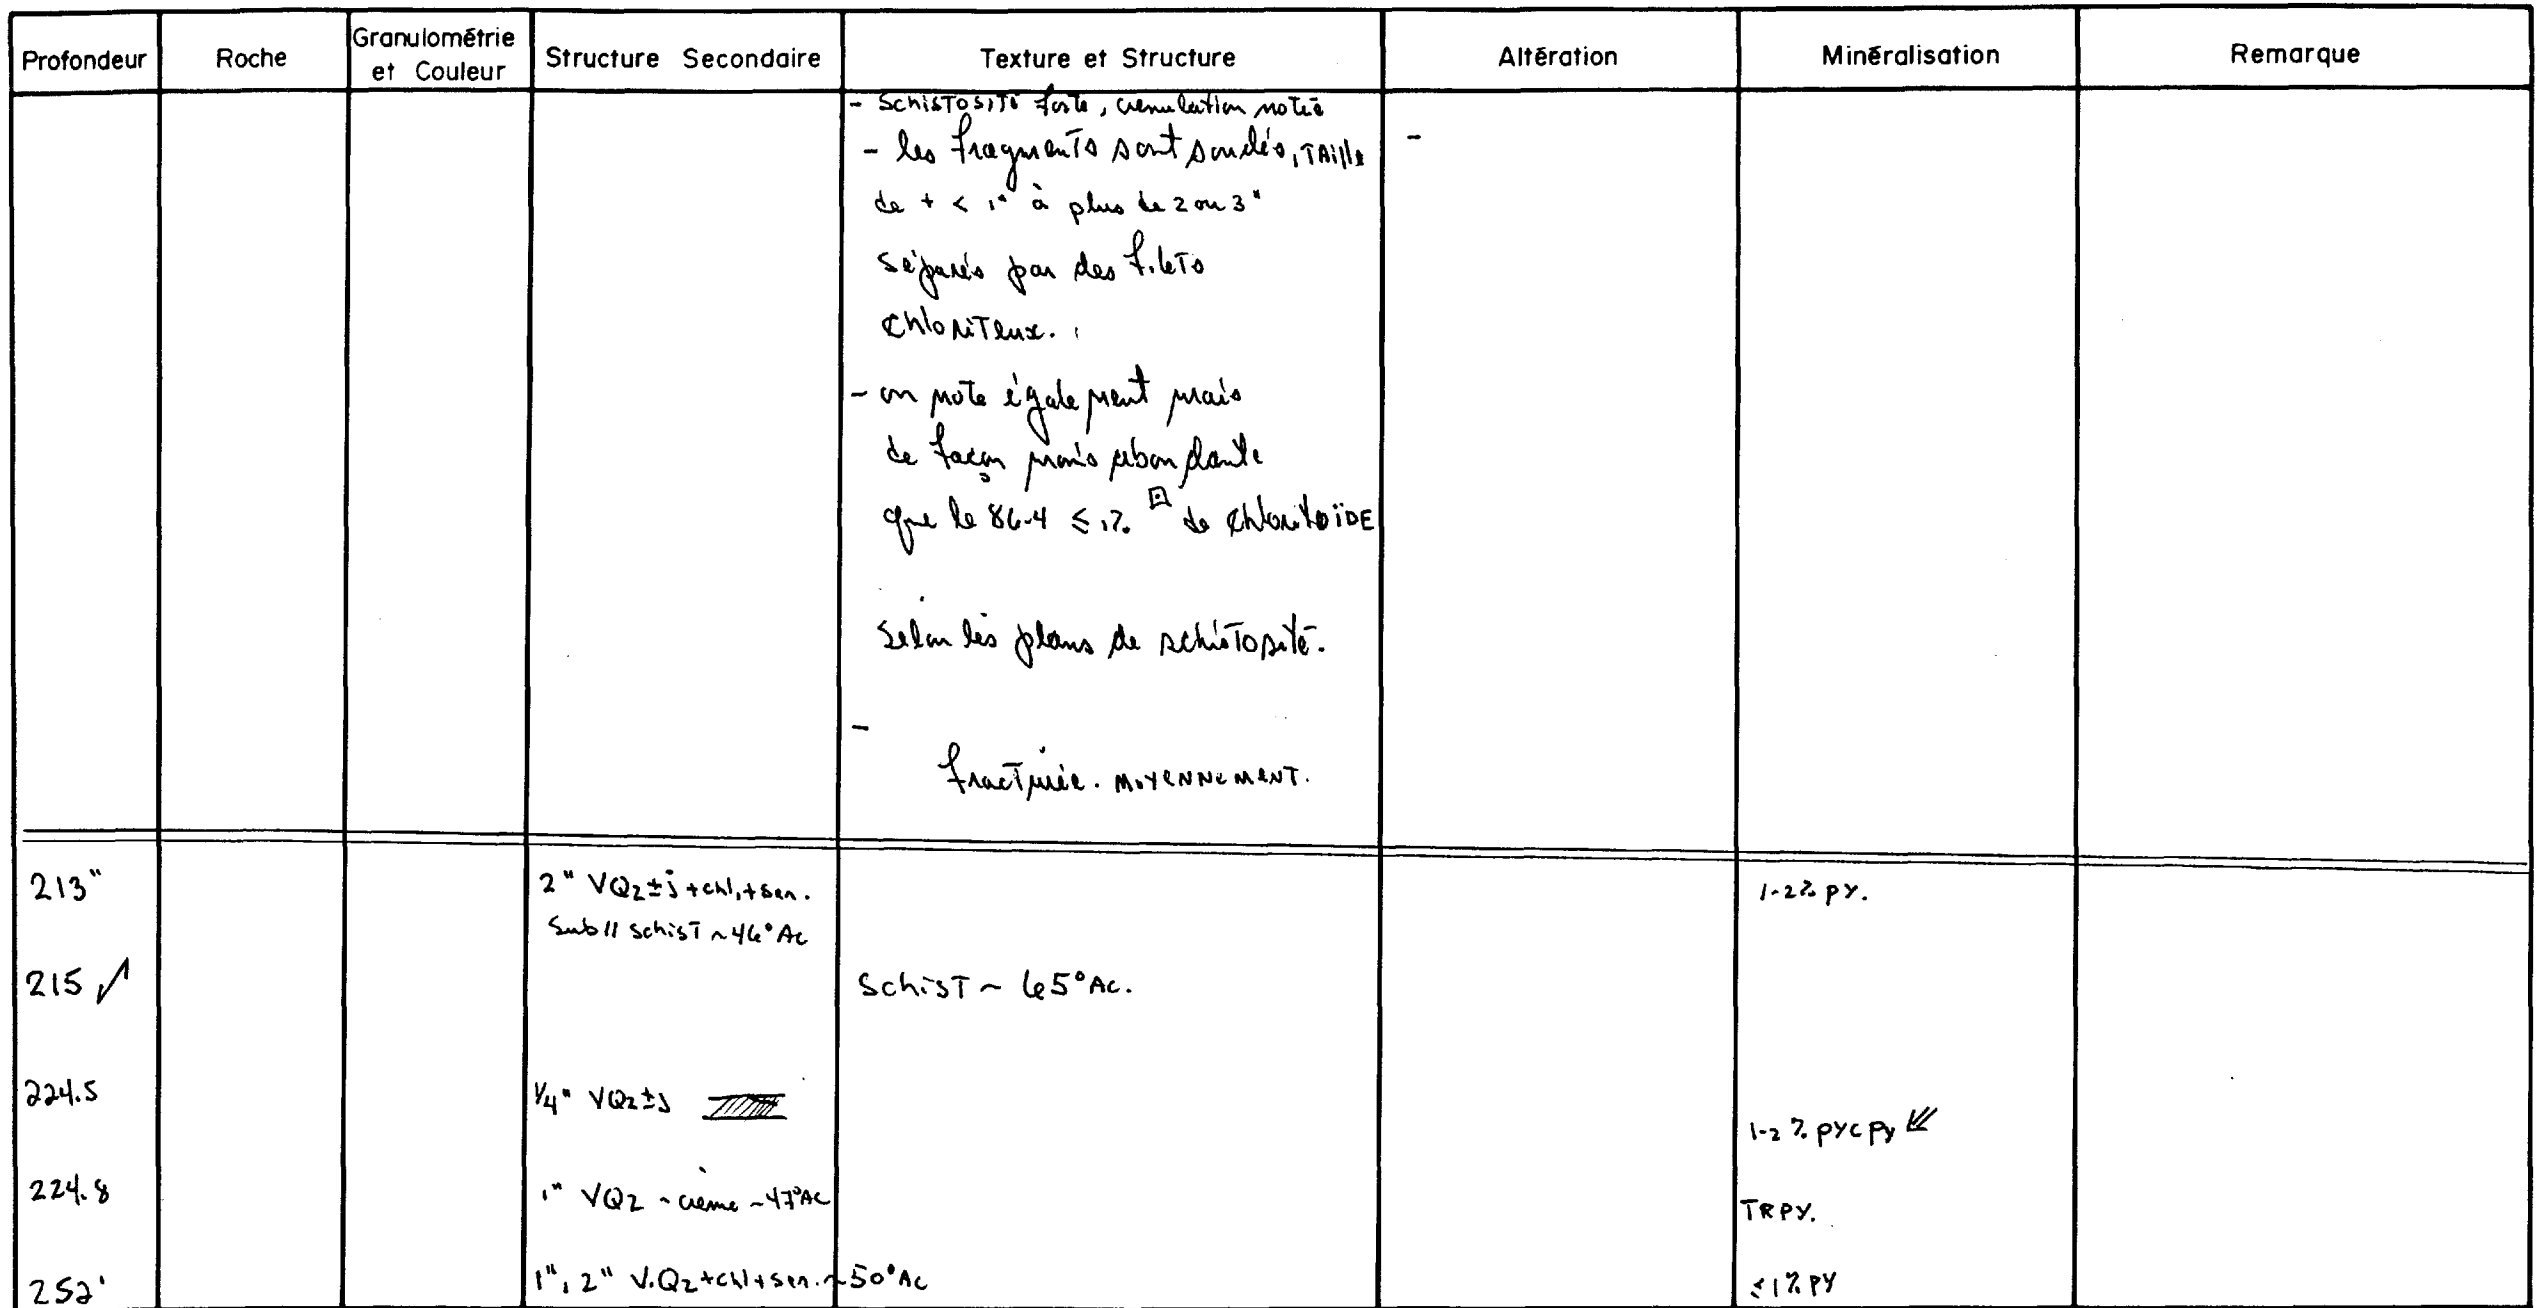 Profondeur Roche Granulométrie et Couleur Structure Secondaire Texture et Structure Altération Minéralisation Remarque
- Schistosité forte, crenulation notée
- les fragments sont soudés, taille -
de + < 1" à plus de 2 ou 3"
séparés par des filets
chloriteux.
- on note également mais
de façon moins abondante
que le 86-4 ≤ 1% de chloritoïDE
selon les plans de schistosité.
-
fracturée. MOYENNEMENT.
213" 2" VQz±j +chl,+ser. 1-2% PY.
Sub// schisT ~46° Ac
215 SchisT ~ 65° Ac.
224.5 1/4" VQz±j
1-2 % PYCPy
224.8 1" VQz ~crème ~47° AC
TRPY.
252' 1", 2" V.Qz+chl+ser. ~50° Ac ≤1% PY